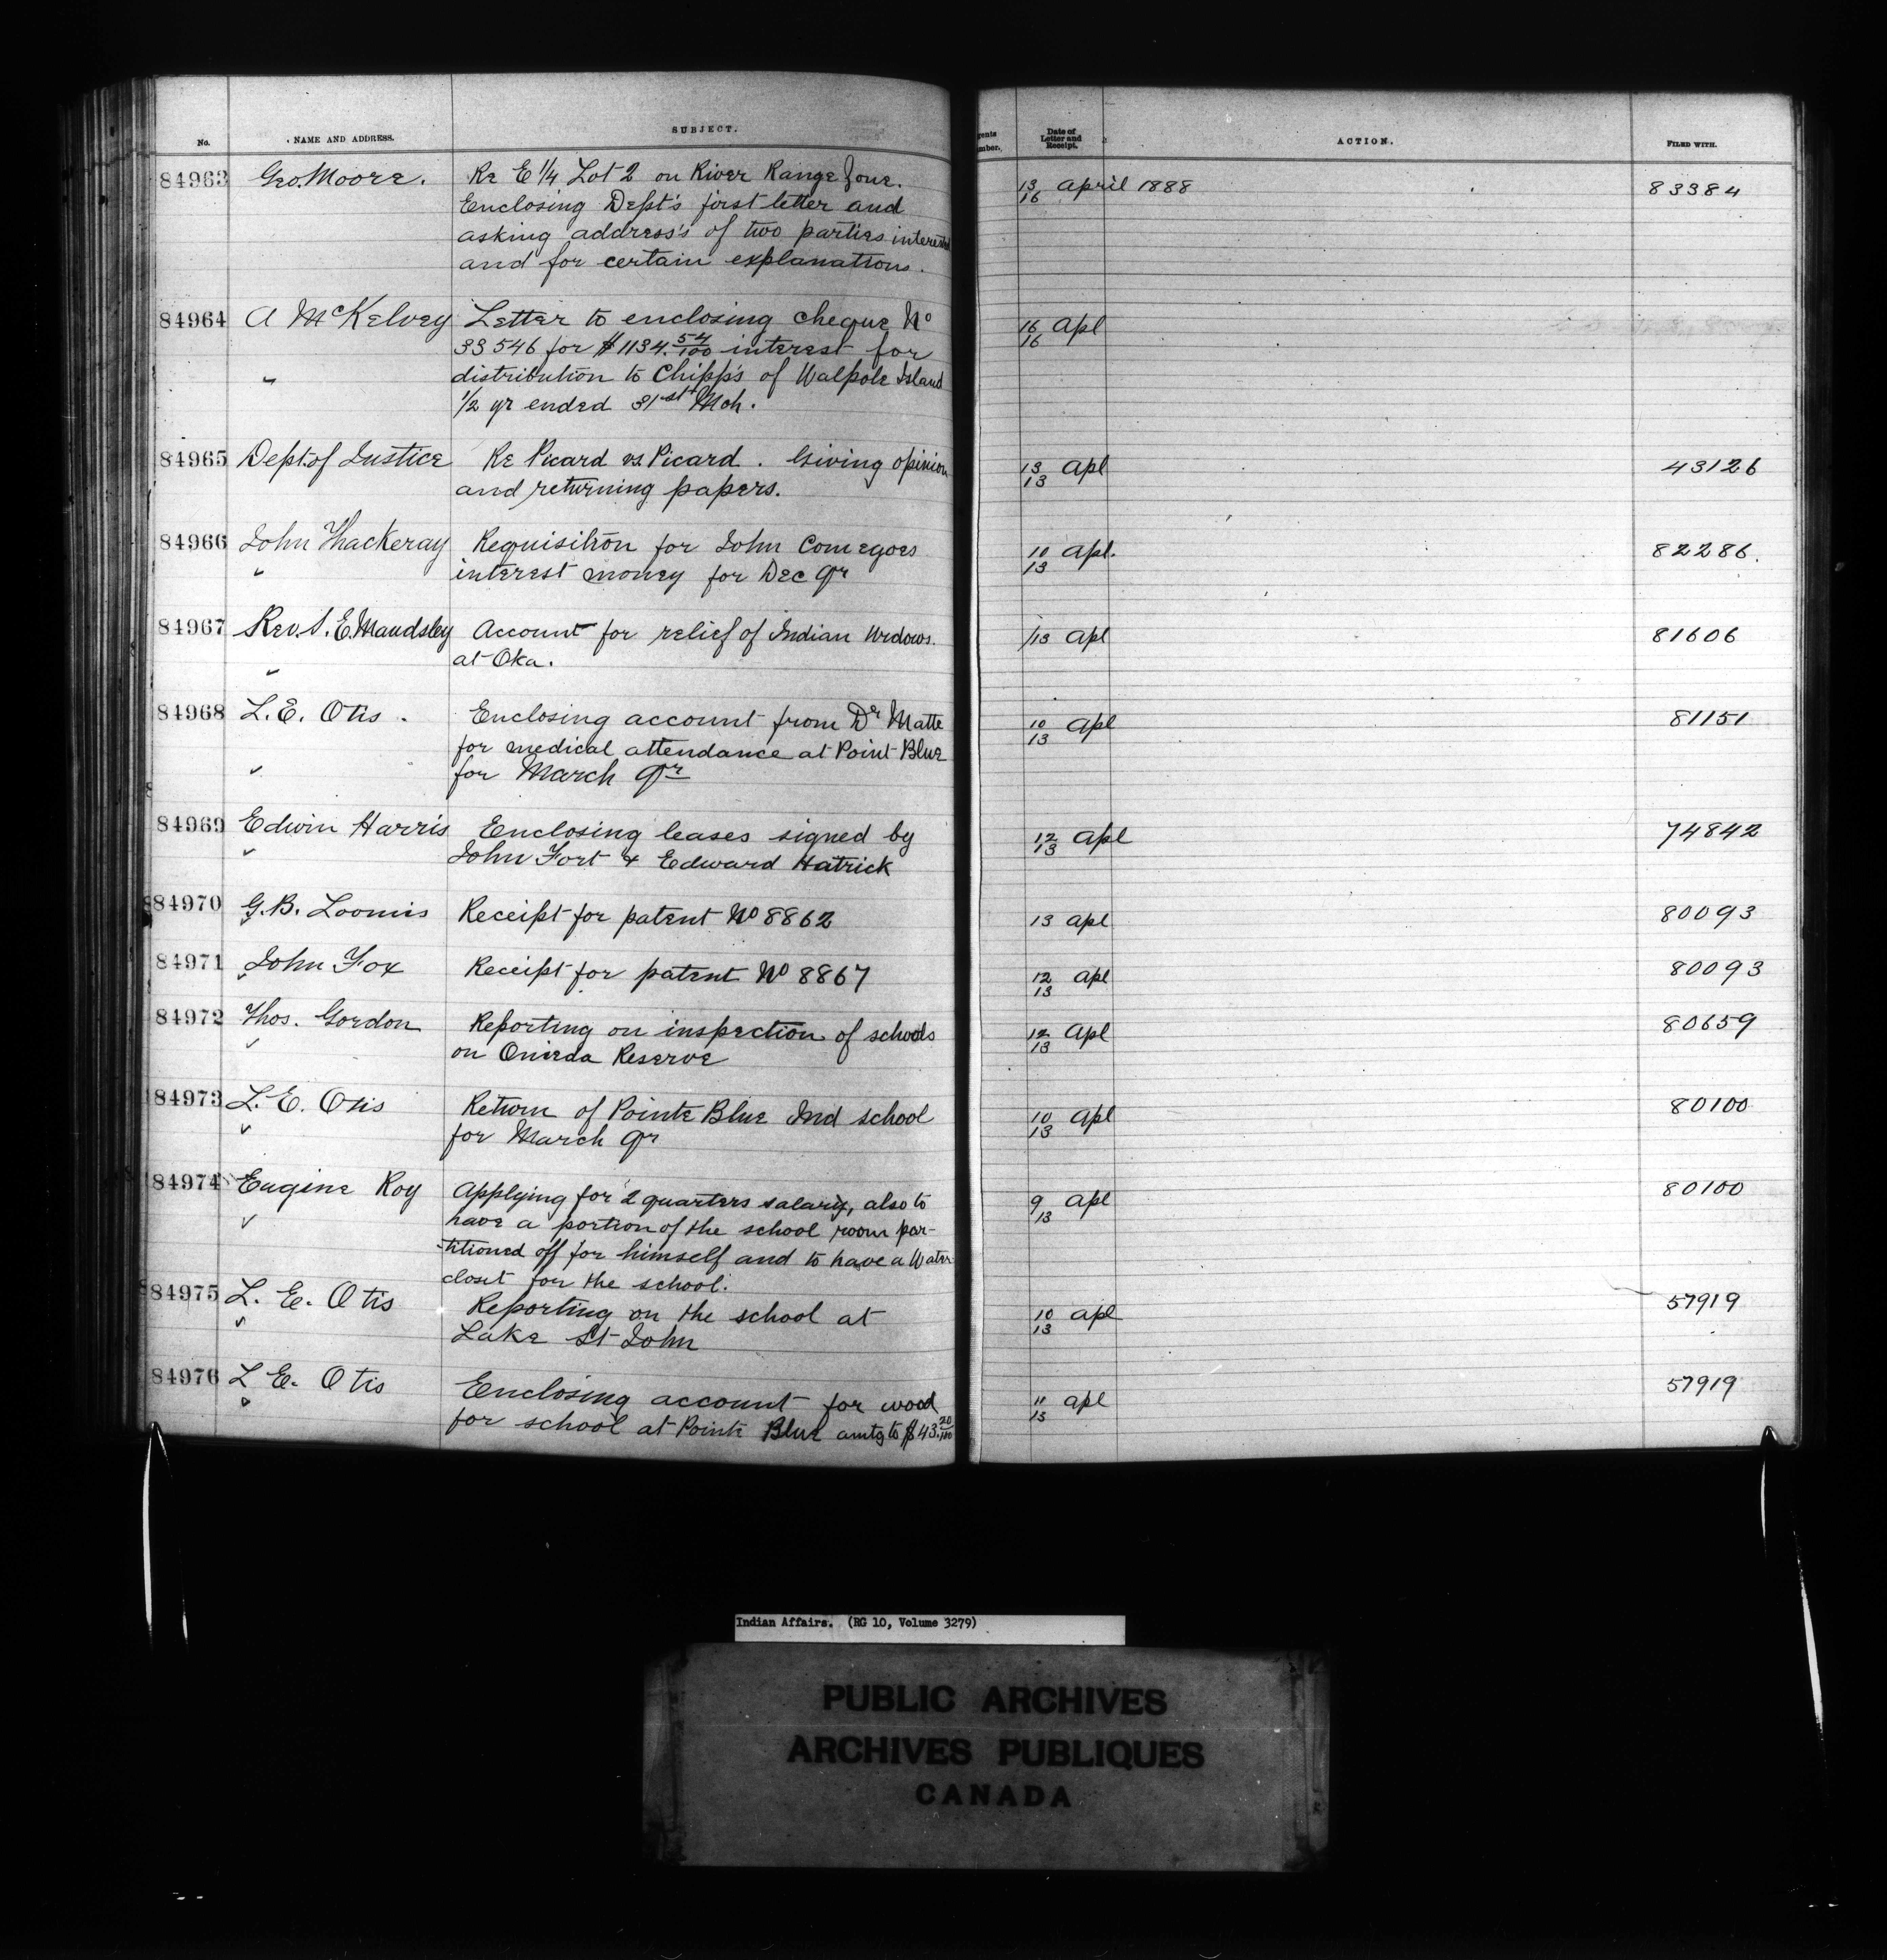 No.
NAME AND ADDRESS.
SUBJECT.
84963 Geo. Moore. Re E 1/4 Lot 2 on River Range
Enclosing Dept's first letter and
asking address's of two parties interested
and for certain explanations.
84964 A McKelvey Letter to enclosing cheque No
33546 for $1134.54/100 interest for
distribution to Chipp's of Walpole Island
1/2 yr ended 31st Mch.
84965 Dept. of Justice Re Picard vs. Picard. Giving opinion
and returning papers.
84966 John Thackeray Requisition for John Comegoes
" interest money for Dec Qr
84967 Rev. S. E. Maudsley Account for relief of Indian Widows.
at Oka.
84968 L. E. Otis. Enclosing account from Dr Matte
for medical attendance at Point Blue
for March Qr
84969 Edwin Harris Enclosing leases signed by
John Fort & Edward Hatrick
84970 G. B. Loomis Receipt for patent No 8862
84971 John Fox Receipt for patent No 8867
84972 Thos. Gordon Reporting on inspection of schools
on Onieda Reserve
84973 L. E. Otis Return of Pointe Blue Ind school
for March Qr
84974 Eugine Roy Applying for 2 quarters salary, also to
have a portion of the school room par-
-titioned off for himself and to have a Water
closet for the school.
84975 L. E. Otis Reporting on the school at
Lake St John
84976 L E. Otis Enclosing account for wood
for school at Pointe Blue amtg to $43.20/100
gents
mber.
Date of
Letter and
Receipt.
ACTION.
FILED WITH.
13/16 April 1888 83384
16/16 Apl
13/13 Apl 43126
10/13 Apl. 82286.
/13 Apl 81606
10/13 Apl 81151
12/13 Apl 74842
13 Apl 80093
12/13 Apl 80093
12/13 Apl 80659
10/13 Apl 80100
9/13 Apl 80100
10/13 Apl 57919
11/13 Apl 57919
Indian Affairs. (RG 10, Volume 3279)
PUBLIC ARCHIVES
ARCHIVES PUBLIQUES
CANADA